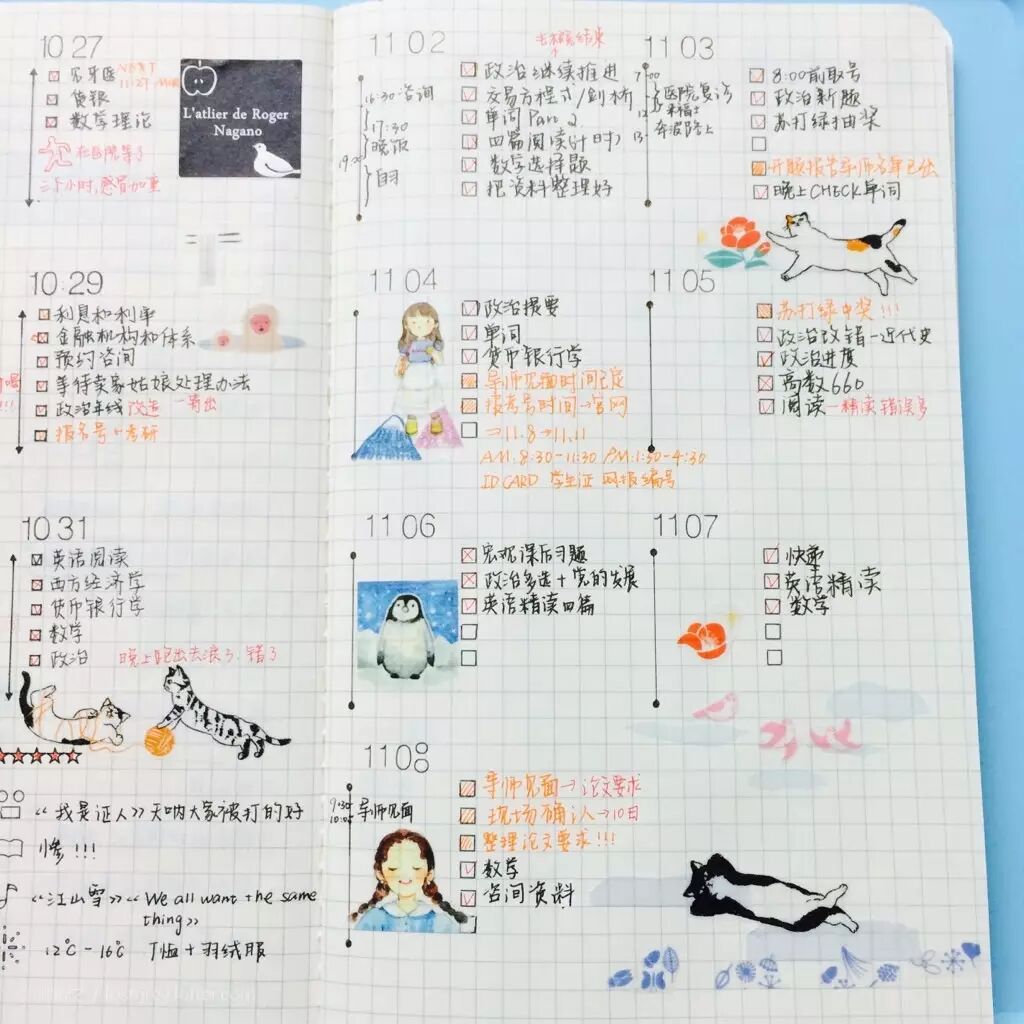 10 27
看牙医 NEXT
货银
数学理论
在医院等了
三个小时,感冒加重
L'atlier de Roger
Nagano
10:29
利息和利率
金融机构和体系
预约咨询
等待卖家姑娘处理办法
政治年线改造→寄出
报名号→考研
10 31
英语阅读
西方经济学
货币银行学
数学
政治
晚上跑出去浪了.错了
《我是证人》天呐大家被打的好
惨!!!
《江山雪》《We all want the same
thing》
12℃-16℃ T恤+羽绒服
11 02
16:30-咨询
17:30
晚饭
政治继续推进
交易方程式/剑桥
单词Part 2
四篇阅读(计时)
数学选择题
把资料整理好
11 03
7:00
医院复诊
8:00前取号
政治新题
苏打绿抽奖
开题报告导师名单已出
晚上CHECK单词
11 04
政治提要
单词
货币银行学
导师见面时间已定
报考号时间→官网
→11.8→11.11
AM.8:30-11:30 PM.1:30-4:30
ID CARD 学生证 网报编号
11 05
苏打绿中奖!!!
政治改错-近代史
政治进度
高数660
阅读→精读错误多
11 06
宏观课后习题
政治多选+党的发展
英语精读四篇
11 07
快递
英语精读
数学
11 08
9:30
10:00
导师见面
导师见面→论文要求
现场确认→10日
整理论文要求!!!
数学
咨询资料